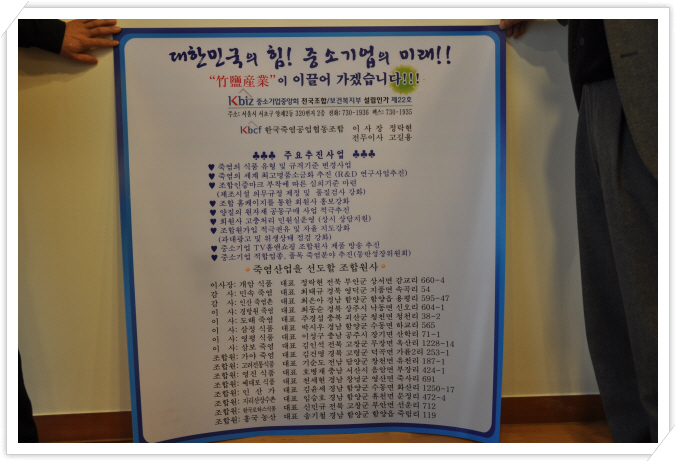 대한민국의 힘! 중소기업의 미래!!
"竹鹽産業"이 이끌어 가겠습니다!!!
Kbiz 중소기업중앙회 전국조합/보건복지부 설립인가 제22호
주소: 서울시 서초구 양재2동 320번지 2층 전화: 730-1936 팩스: 730-1935
Kbcf 한국죽염공업협동조합 이 사 장 정락현
전무이사 고길용
♣♣♣ 주요추진사업 ♣♣♣
♥ 죽염의 식품 유형 및 규격기준 변경사업
♥ 죽염의 세계 최고명품소금화 추진 (R&D) 연구사업추진)
♥ 조합인증마크 부착에 따른 심의기준 마련
(제조시설 의무규정 제정 및 품질검사 강화)
♥ 조합 홈페이지를 통한 회원사 홍보강화
♥ 양질의 원자재 공동구매 사업 적극추진
♥ 회원사 고충처리 민원실운영 (상시 상담지원)
♥ 조합원가입 적극권유 및 자율 지도강화
(과대광고 및 위생상태 점검 강화)
♥ 중소기업 TV홈쇼핑 조합원사 제품 방송 추진
♥ 중소기업 적합업종, 품목 죽염분야 추진(동반성장위원회)
죽염산업을 선도할 조합원사
이사장: 개암 식품 대표 정락현 전북 부안군 상서면 감교리 660-4
감 사: 민속 죽염 대표 최태규 경북 영덕군 지품면 속곡리 54
감 사: 인산 죽염촌 대표 최은아 경남 함양군 함양읍 용평리 595-47
이 사: 경방원 죽염 대표 최동순 경북 상주시 낙동면 신오리 604-1
이 사: 도해 죽염 대표 주경섭 충북 괴산군 청천면 청천리 38-2
이 사: 삼정 식품 대표 박시우 경남 함양군 수동면 하교리 565
이 사: 영평 식품 대표 이성구 충남 공주시 장기면 산학리 71-1
이 사: 삼보 죽염 대표 김인석 전북 고창군 무장면 옥산리 1228-14
조합원: 가야 죽염 대표 김진명 경북 고령군 덕곡면 가륜2리 253-1
조합원: 고려전통식품 대표 기순도 전남 담양군 창평면 유천리 187-1
조합원: 영진 식품 대표 호병세 충남 서산시 음암면 부장리 424-1
조합원: 대표 전제헌 경남 창녕군 영산면 죽사리 691
조합원: 인 산 가 대표 김윤세 경남 함양군 수동면 화산리 1250-17
조합원: 지리산장수촌 대표 임승호 경남 함양군 휴천면 문정리 472-4
조합원: 대표 신민규 전북 고창군 부안면 선운리 712
조합원: 흥국 농산 대표 송기철 경남 함양군 함양읍 죽림리 119